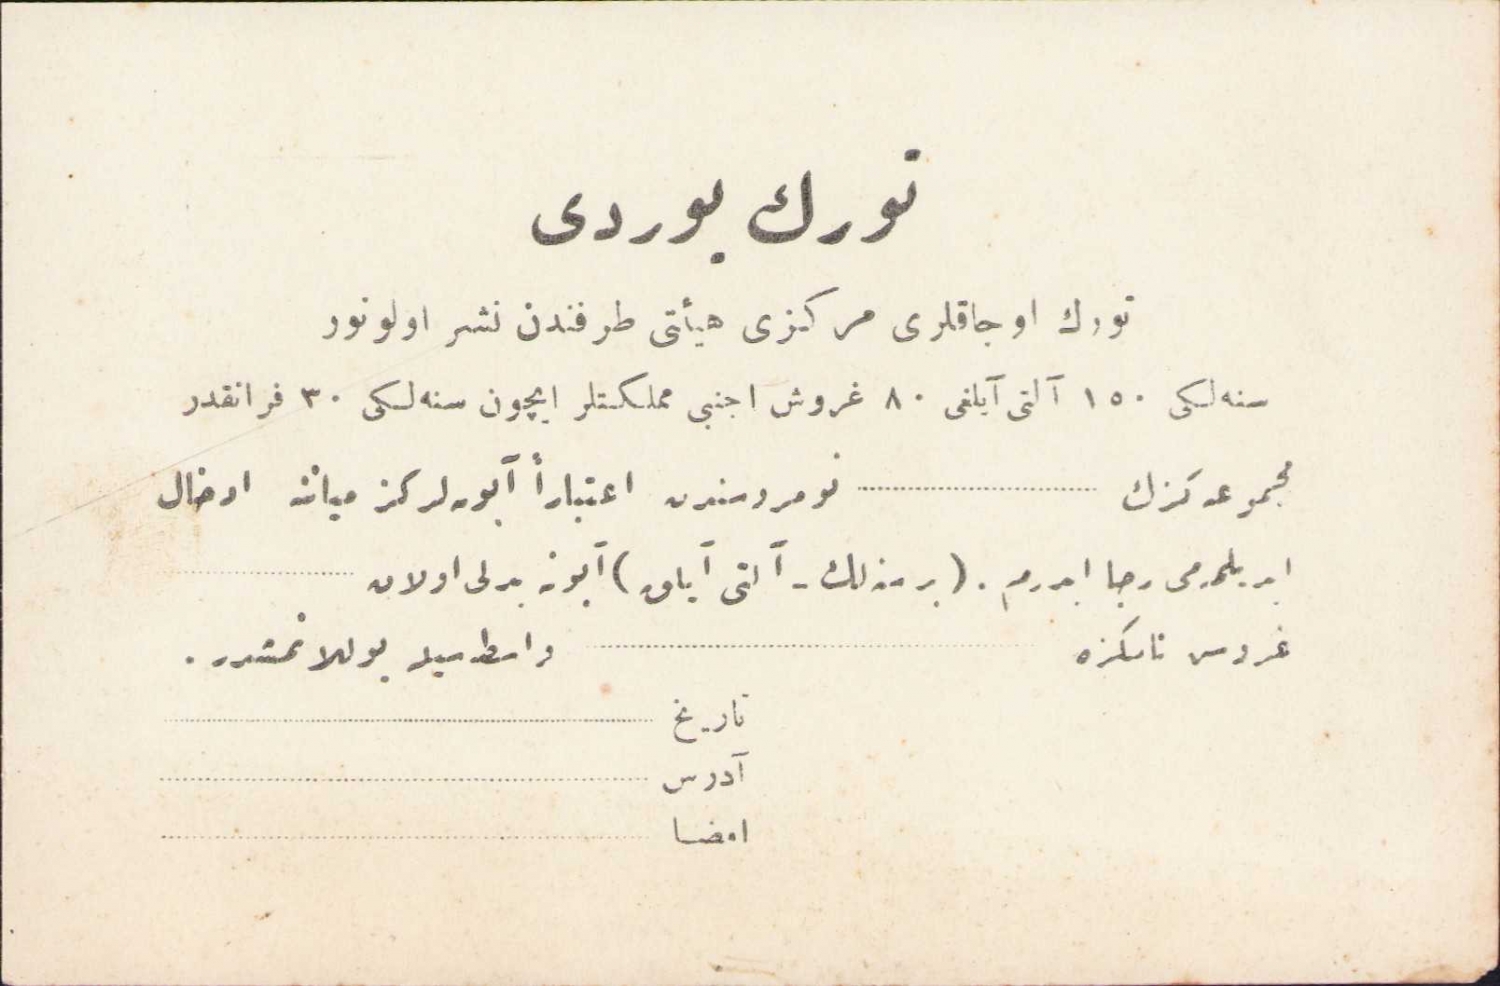 تورك يوردى
تورك اوجاقلرى مركزى هيأتى طرفندن نشر اولونور
سنه‌لكى ١٥٠ آلتى آيلغى ٨٠ غروش اجنبى مملكتلر ايچون سنه‌لكى ٣٠ فرانقدر
مجموعه‌كزك ........ نومروسندن اعتباراً آبونه‌لركز ميانه ادخال
ايديلمه‌مى رجا ايدرم . ( بر سنه‌لك - آلتى آيلق ) آبونه بدلى اولان ........
غروش نامكزه ........ واسطه‌سيله يوللانمشدر .
تاريخ ........
آدرس ........
امضا ........